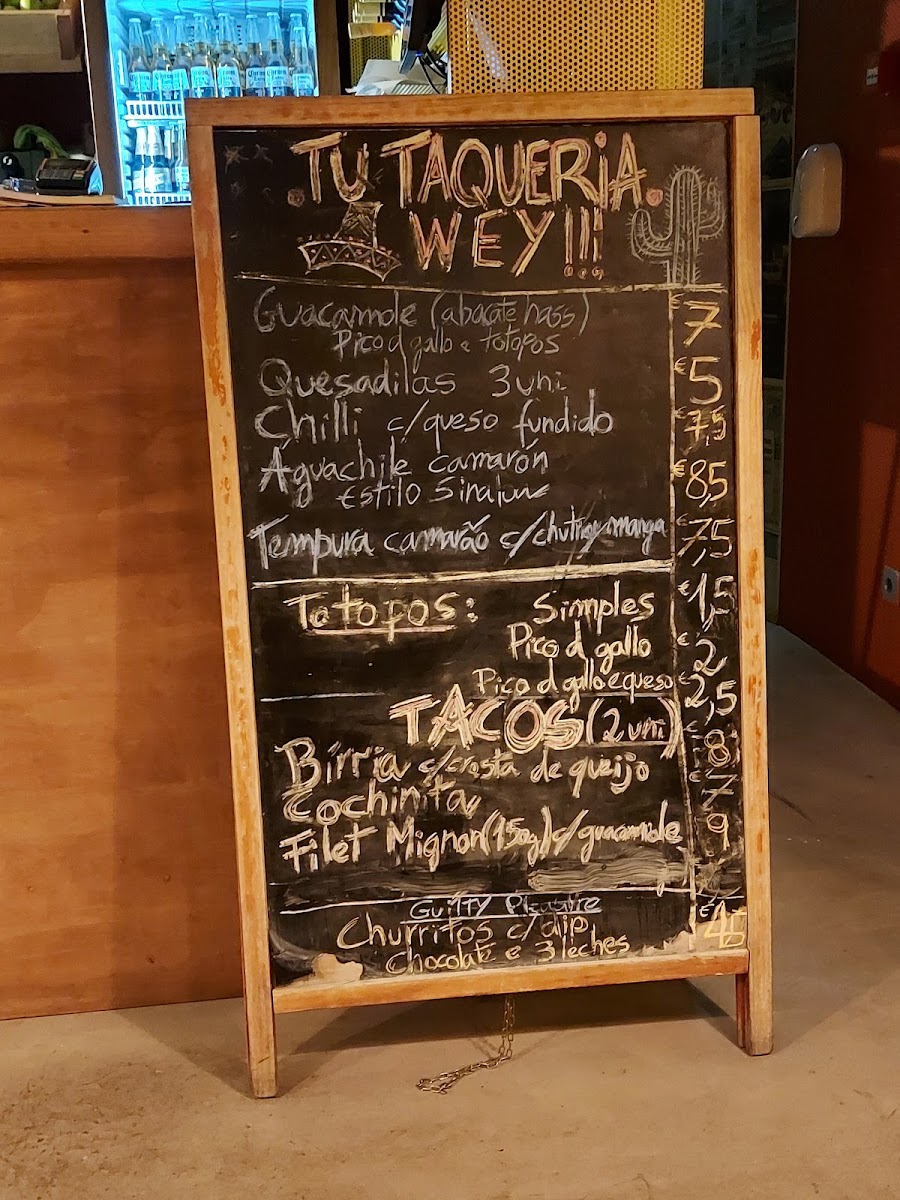 .TU TAQUERIA.
WEY!!!
Guacamole (abacate hass) € 7
Pico d gallo e totopos
Quesadilas 3 uni € 5
Chilli c/queso fundido € 7,5
Aguachile camarón € 8,5
Estilo
Tempura camarão c/chutney manga € 7,5
Totopos: Simples € 1,5
Pico d gallo € 2
Pico d gallo e queso € 2,5
TACOS (2 uni)
Birria c/crosta de queijo € 8
Cochinita € 7
Filet Mignon (150g) c/guacamole 9
Guilty Pleasure
Churritos c/dip €
Chocolate e 3 leches